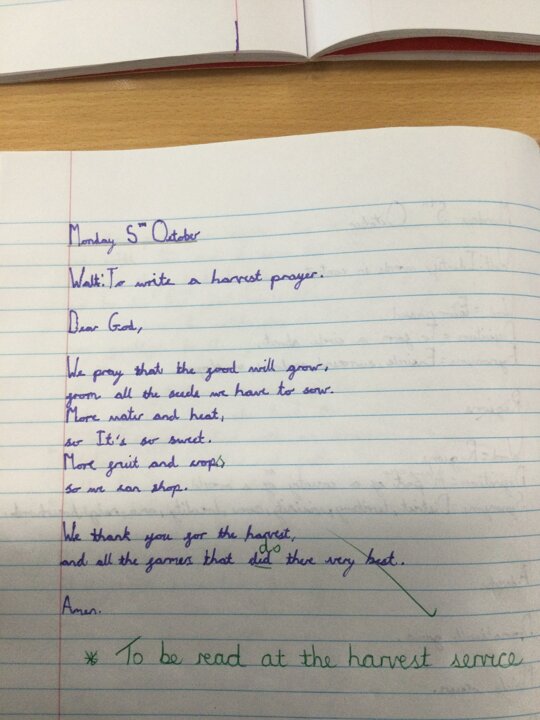 Monday 5th October
Walt: To write a harvest prayer.
Dear God,
We pray that the food will grow,
from all the seeds we have to sow.
More water and heat,
so It's so sweet.
More fruit and crops
so we can shop.
We thank you for the harvest,
do
and all the farmers that did there very best..
Amen.
* To be read at the harvest service